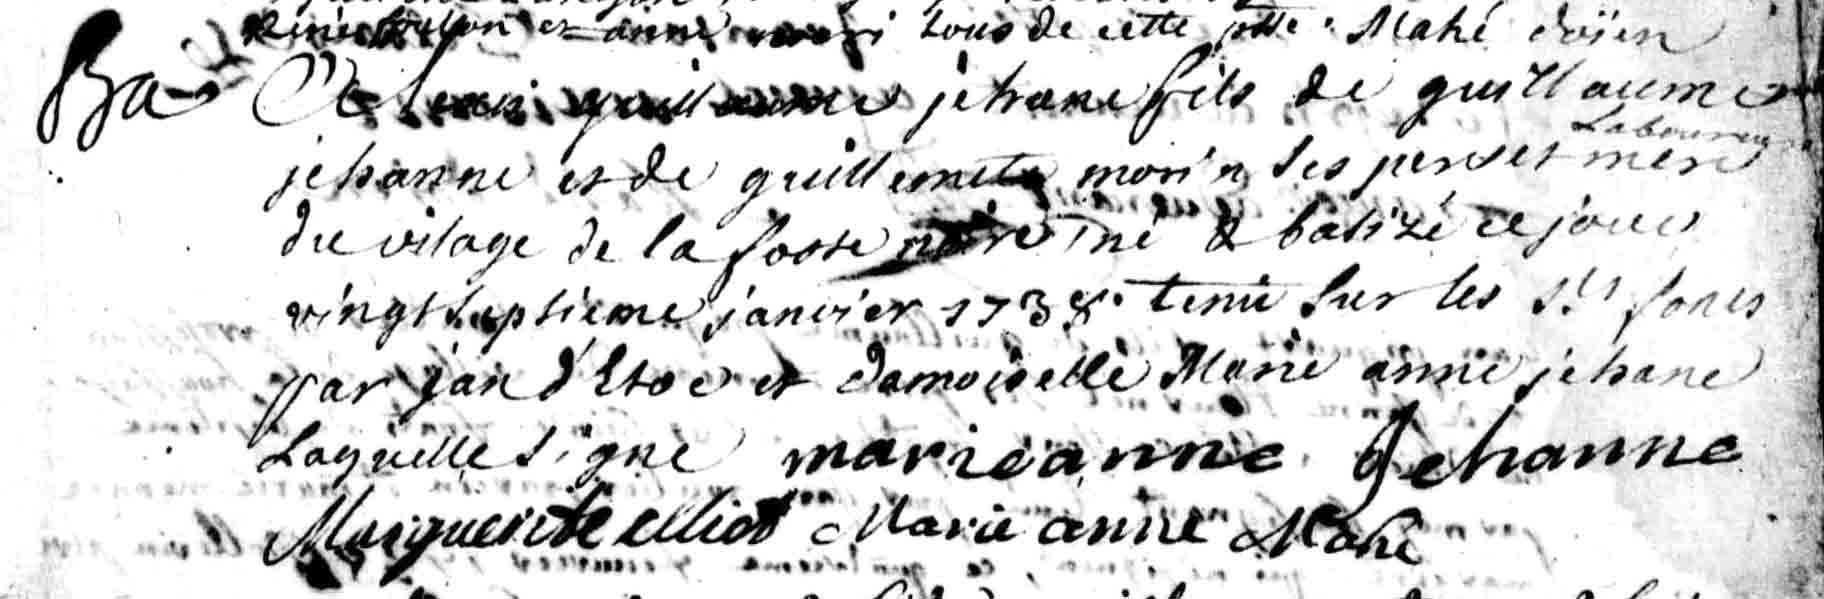 et anne tous de cette Mahé doïen
Ba
guillaume jehane fils de guillaume
Laboureur
jehanne et de guillemete morin ses per et mere
du vilage de la fosse né & batizé ce jour
vingt septieme janvier 1738. tenu sur les sts fonts
par jan d'Etoc et damoiselle Marie anne jehane
Laquelle signe marie anne Jehanne
Marguerite elliot Marie anne Mahé